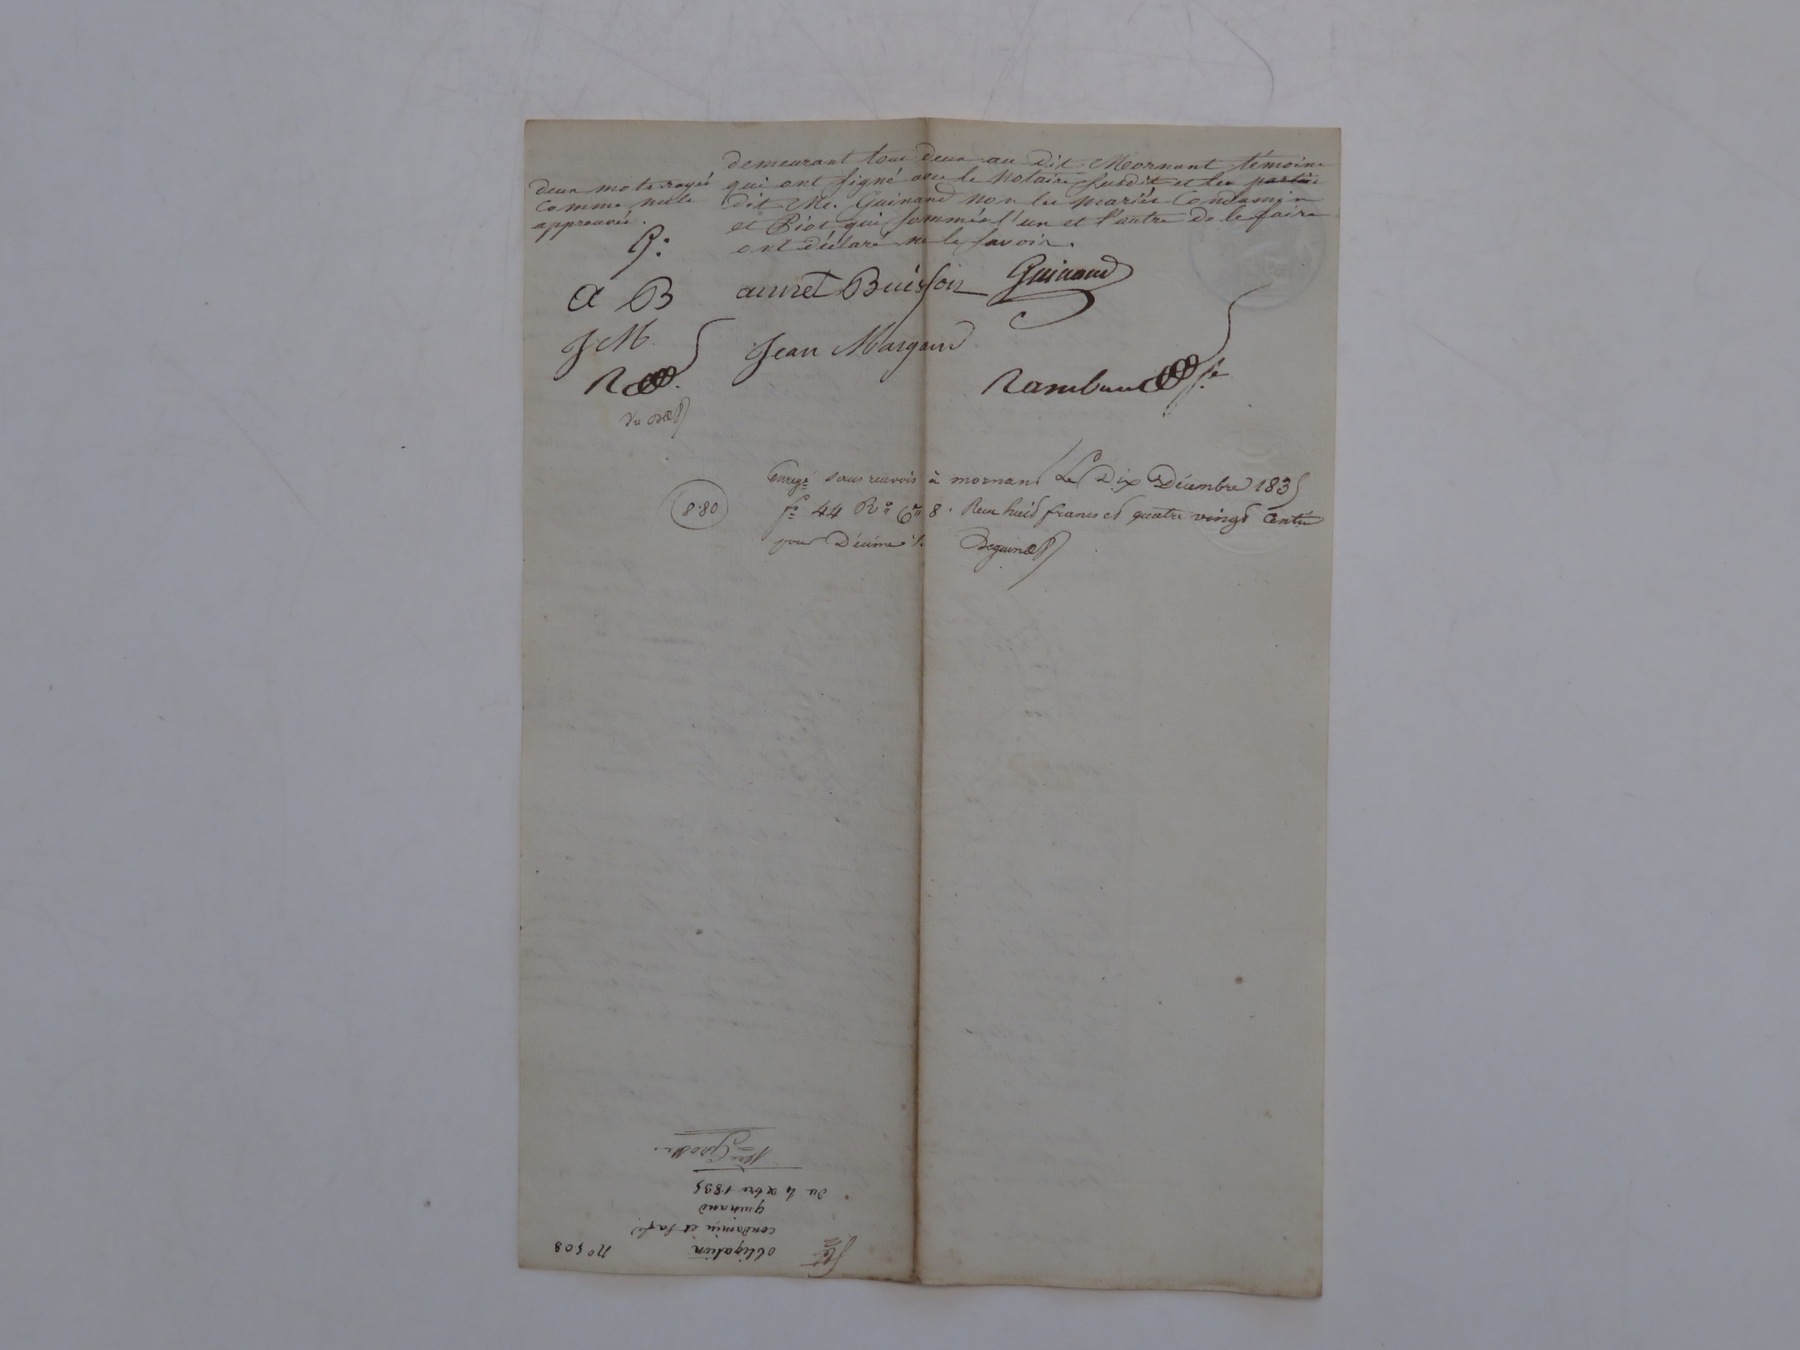 demeurant tous deux au dit Mornant témoins
qui ont signé avec le Notaire susdit et les parties
dit Me. Guinand non les mariés Condamin
et Piot qui sommés l'un et l'autre de le faire
ont déclaré ne le savoir.
deux mots rayés
comme nuls
approuvés.
G:
a B
JM
R
annet Buisson Guinand
Jean Margand
Rambaud
Enregé sans renvois à mornant Le Dix Décembre 1835
fo 44 Ro Ce 8. Reçu huit francs et quatre vingt centes
pour Décime
8.80
no 503
obligation
condamin et sa fe
guinand
du 4 xbre 1835